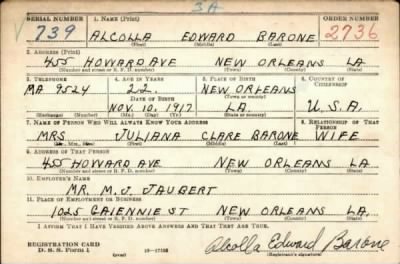 3A
SERIAL NUMBER 1. NAME (Print) ORDER NUMBER
V 739 ALCOLLA EDWARD BARONE 2736
(First) (Middle) (Last)
2. ADDRESS (Print)
455 HOWARD AVE NEW ORLEANS LA
(Number and street or R. F. D. number) (Town) (County) (State)
3. TELEPHONE 4. AGE IN YEARS 5. PLACE OF BIRTH 6. COUNTRY OF CITIZENSHIP
MA 9524 22 NEW ORLEANS
DATE OF BIRTH (Town or county)
NOV. 10. 1917 LA. U.S.A.
(Exchange) (Number) (Mo.) (Day) (Yr.) (State or country)
7. NAME OF PERSON WHO WILL ALWAYS KNOW YOUR ADDRESS 8. RELATIONSHIP OF THAT PERSON
MRS JULIANA CLARE BARONE WIFE
(Mr., Mrs., Miss) (First) (Middle) (Last)
9. ADDRESS OF THAT PERSON
455 HOWARD AVE NEW ORLEANS LA.
(Number and street or R. F. D. number) (Town) (County) (State)
10. EMPLOYER'S NAME
MR. M. J. JAUBERT
11. PLACE OF EMPLOYMENT OR BUSINESS
1025 GAIENNIE ST NEW ORLEANS LA.
(Number and street or R. F. D. number) (Town) (County) (State)
I AFFIRM THAT I HAVE VERIFIED ABOVE ANSWERS AND THAT THEY ARE TRUE.
REGISTRATION CARD
D. S. S. Form 1 (over) 16-17105 Alcolla Edward Barone
(Registrant's signature)